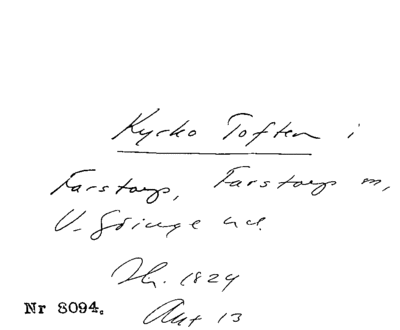 Kyrko Toften i
Farstorp, Farstorps sn,
V. Göinge hd.
Th. 1824
Akt 13
Nr 8094.